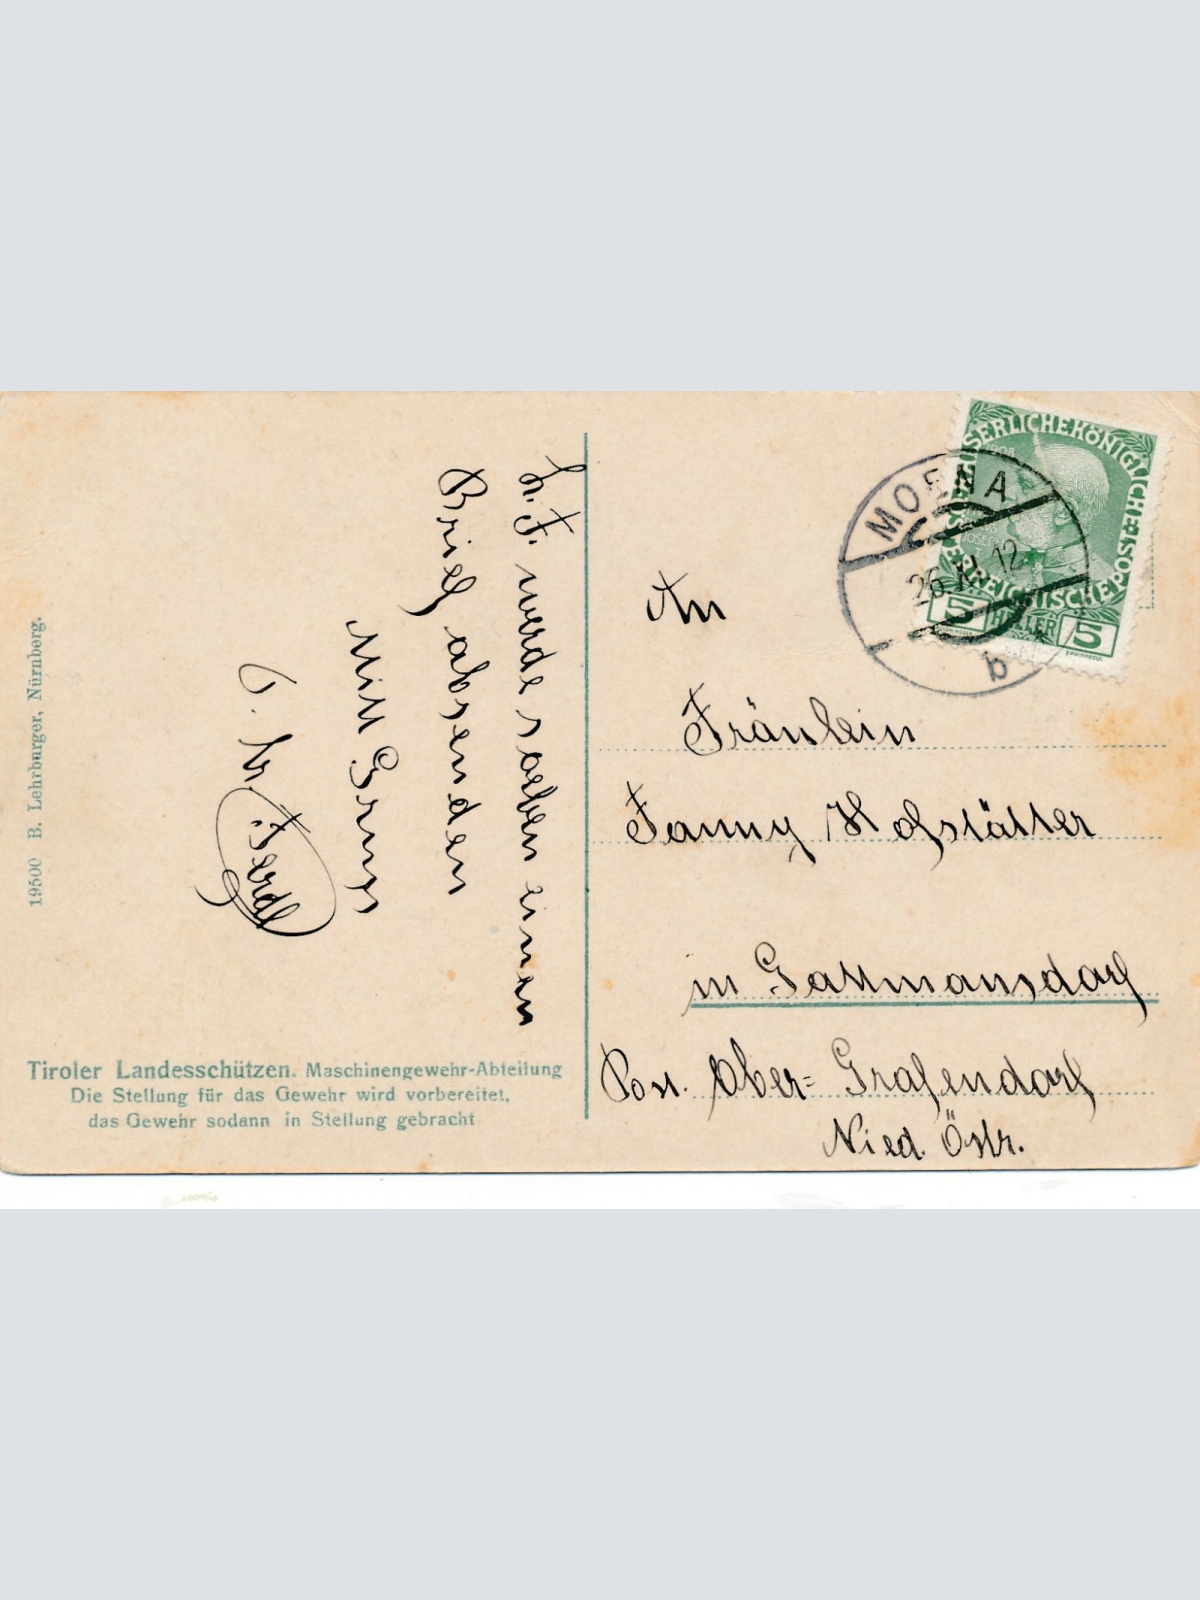 L. F. werde soeben einen
Brief absenden
Mit Gruss
D. lb. Ferdl
19500 B. Lehrburger, Nürnberg.
Tiroler Landesschützen. Maschinengewehr-Abteilung
Die Stellung für das Gewehr wird vorbereitet,
das Gewehr sodann in Stellung gebracht
KAISERLICHEKÖNIGLICHE ÖSTERREICHISCHEPOST
1908
5 HELLER 5
MOENA
26 XI 12
b
An
Fräulein
Fanny Hofstätter
in Gattmansdorf
Post. Ober-Grafendorf
Nied. Östr.